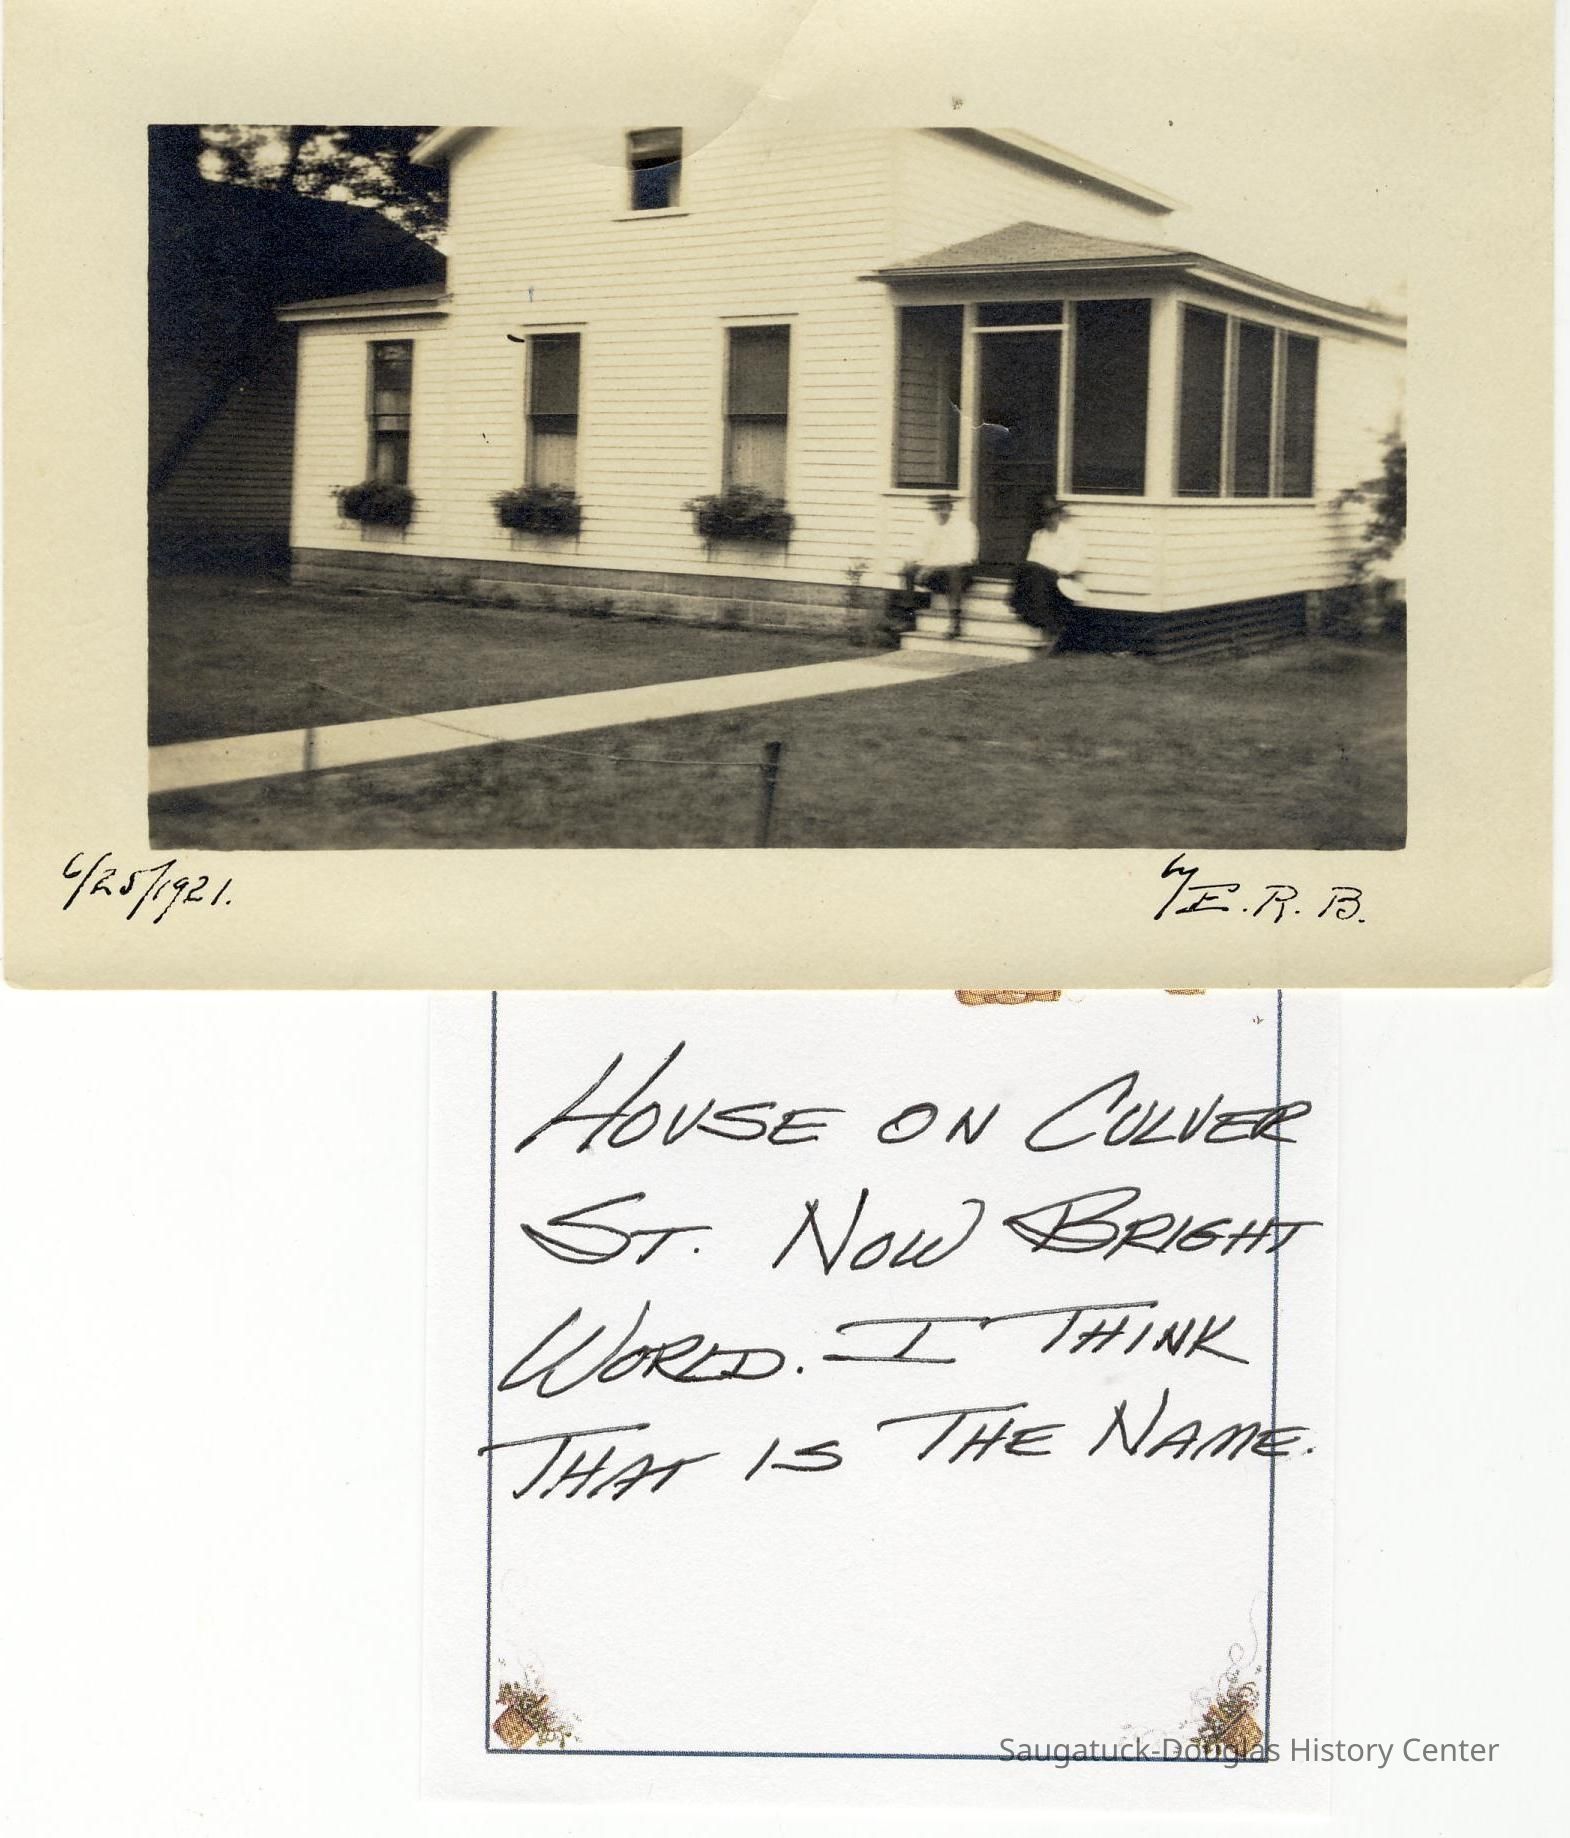 6/25/1921.
by E. R. B.
HOUSE ON CULVER
ST. NOW BRIGHT
WORLD. I THINK
THAT IS THE NAME.
Saugatuck-Douglas History Center